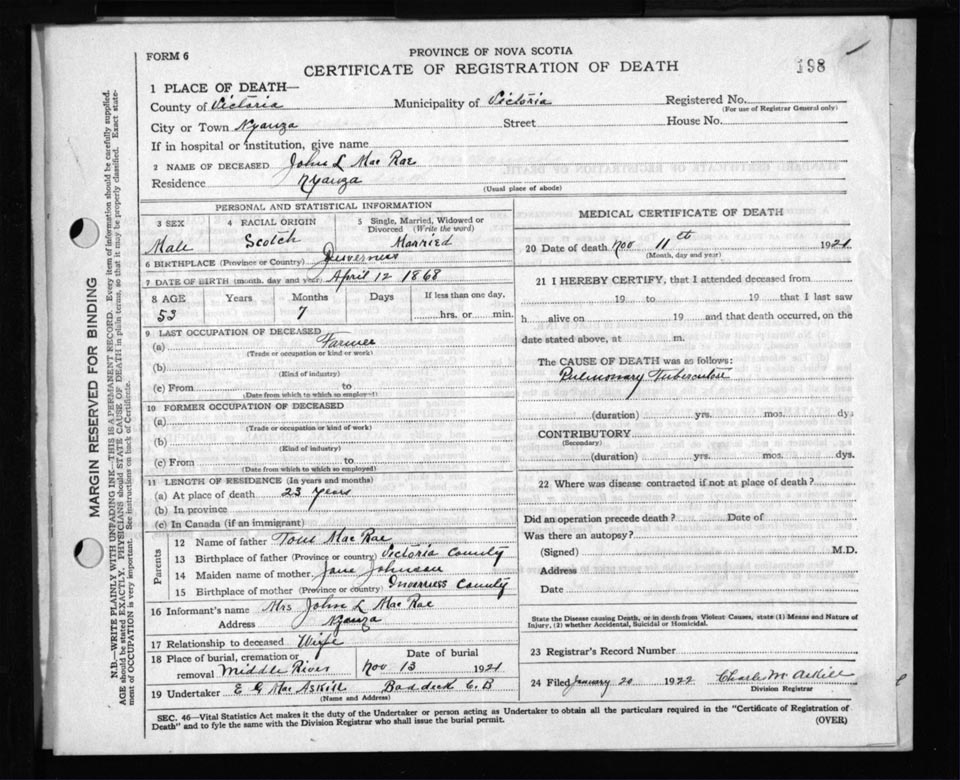 198
PROVINCE OF NOVA SCOTIA
FORM 6
CERTIFICATE OF REGISTRATION OF DEATH
1 PLACE OF DEATH—
County of Victoria Municipality of Victoria Registered No.
(For use of Registrar General only)
City or Town Nyanza Street House No.
If in hospital or institution, give name
2 NAME OF DECEASED John L Mac Rae
Residence Nyanza
(Usual place of abode)
PERSONAL AND STATISTICAL INFORMATION
3 SEX 4 RACIAL ORIGIN 5 Single, Married, Widowed or Divorced (Write the word)
Male Scotch Married
6 BIRTHPLACE (Province or Country) Inverness
7 DATE OF BIRTH (month, day and year) April 12 1868
8 AGE Years Months Days If less than one day,
53 7 hrs. or min.
9 LAST OCCUPATION OF DECEASED
(a) Farmer
(Trade or occupation or kind or work)
(b)
(Kind of industry)
(c) From to
(Date from which to which so employed)
10 FORMER OCCUPATION OF DECEASED
(a)
(Trade or occupation or kind of work)
(b)
(Kind of industry)
(c) From to
(Date from which to which so employed)
11 LENGTH OF RESIDENCE (In years and months)
(a) At place of death 23 years
(b) In province
(c) In Canada (if an immigrant)
Parents
12 Name of father Mac Rae
13 Birthplace of father (Province or country) Victoria County
14 Maiden name of mother Jane Johnson
15 Birthplace of mother (Province or country) Inverness County
16 Informant's name Mrs John L Mac Rae
Address Nyanza
17 Relationship to deceased Wife
18 Place of burial, cremation or removal Middle River Date of burial Nov 13 1921
19 Undertaker E G Mac Askill Baddeck C.B
(Name and Address)
MEDICAL CERTIFICATE OF DEATH
20 Date of death Nov 11th 1921
(Month, day and year)
21 I HEREBY CERTIFY, that I attended deceased from
19 to 19 that I last saw
h alive on 19 and that death occurred, on the
date stated above, at m.
The CAUSE OF DEATH was as follows:
Pulmonary Tuberculosis
(duration) yrs. mos. dys
CONTRIBUTORY
(Secondary)
(duration) yrs. mos. dys.
22 Where was disease contracted if not at place of death?
Did an operation precede death? Date of
Was there an autopsy?
(Signed) M.D.
Address
Date
State the Disease causing Death, or in Death from Violent Causes, state (1) Means and Nature of
Injury, (2) whether Accidental, Suicidal or Homicidal.
23 Registrar's Record Number
24 Filed January 20 1922
Division Registrar
SEC. 46—Vital Statistics Act makes it the duty of the Undertaker or person acting as Undertaker to obtain all the particulars required in the "Certificate of Registration of
Death" and to fyle the same with the Division Registrar who shall issue the burial permit.
(OVER)
MARGIN RESERVED FOR BINDING
N.B.—WRITE PLAINLY WITH UNFADING INK—THIS IS A PERMANENT RECORD. Every item of information should be carefully supplied.
AGE should be stated EXACTLY. PHYSICIANS should STATE CAUSE OF DEATH in plain terms, so that it may be properly classified. Exact state-
ment of OCCUPATION is very important. See instructions on back of Certificate.